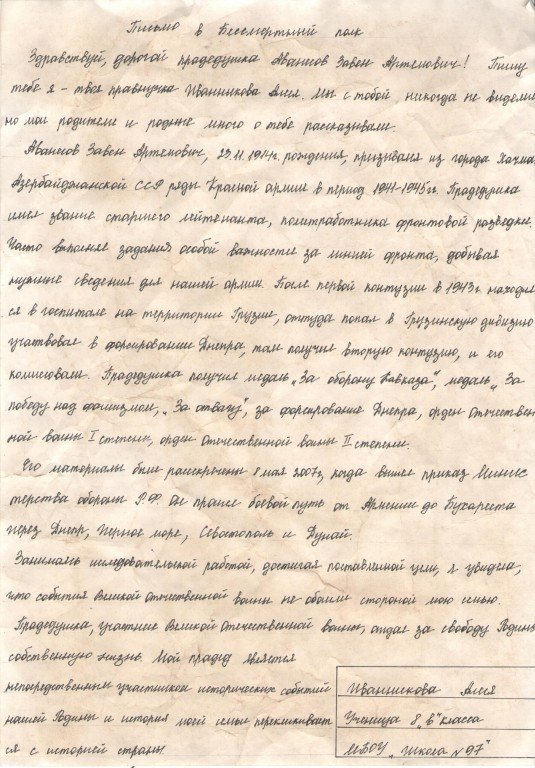 Письмо в Бессмертный полк
Здравствуй, дорогой прадедушка Авансов Завен Артемович! Пишу
тебе я - твоя правнучка Иванникова Алея. Мы с тобой никогда не виделись
но мои родители и родные много о тебе рассказывали.
Авансов Завен Артемович, 23.11.1914г. рождения, призывался из города Хачмас
Азербайджанской ССР ряды Красной армии в период 1941-1945гг. Прадедушка
имел звание старшего лейтенанта, политработника фронтовой разведки.
Часто выполнял задания особой важности за линией фронта, добывая
нужные сведения для нашей армии. После первой контузии в 1943г. находил
ся в госпитале на территории Грузии, оттуда попал в Грузинскую дивизию
участвовал в форсировании Днепра, там получил вторую контузию, и его
комиссовали. Прадедушка получил медаль „За оборону Кавказа", медаль „За
победу над фашизмом", „За отвагу", за форсирование Днепра, орден Отечествен
ной войны I степени, орден Отечественной войны II степени.
Его материалы были рассекречены 8 мая 2007г, когда вышел приказ Минис
терства обороны Р.Ф. Он прошел боевой путь от Армении до Бухареста
через Днепр, Черное море, Севастополь и Дунай.
Занимаясь исследовательской работой, достигая поставленной цели, я увидела,
что события Великой Отечественной войны не обошли стороной мою семью.
Прадедушка, участник Великой Отечественной войны, отдал за свободу Родины
собственную жизнь. Мой прадед является
непосредственным участником исторических событий
нашей Родины и история моей семьи перекликает
ся с историей страны.
Иванникова Алея
Ученица 8 „Б" класса
МБОУ „Школа №97"